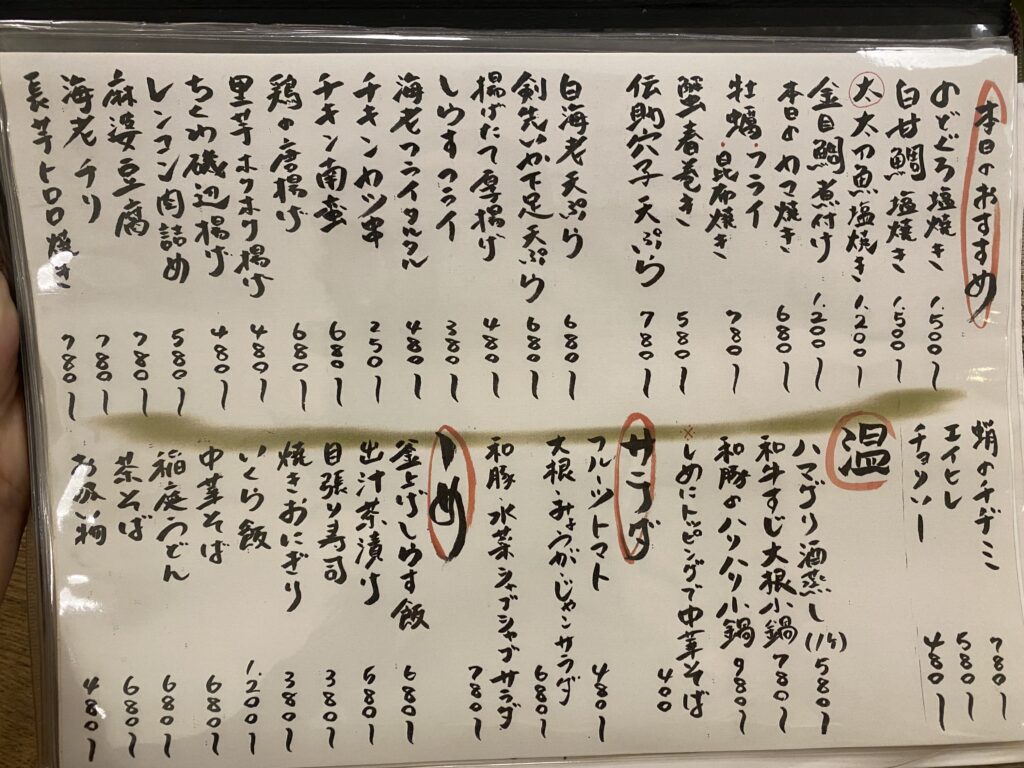 本日のおすすめ
のどぐろ塩焼き 1.500ー
白甘鯛 塩焼き 1.500ー
太 太刀魚塩焼き 1.200ー
金目鯛煮付け 1.200ー
本日のカマ焼き 680ー
牡蠣・フライ・昆布焼き 780ー
蟹春巻き 580ー
伝助穴子 天ぷら 780ー
白海老天ぷら 680ー
剣先いか下足天ぷら 680ー
揚げたて厚揚げ 480ー
しらすフライ 380ー
海老フライタルタル 480ー
チキンカツ串 250ー
チキン南蛮 680ー
鶏の唐揚げ 680ー
里芋ホクホク揚げ 480ー
ちくわ磯辺揚げ 480ー
レンコン肉詰め 580ー
麻婆豆腐 780ー
海老チリ 780ー
長芋トロロ焼き 780ー
蛸のチヂミ 780ー
エイヒレ 580ー
チョリソー 480ー
温
ハマグリ酒蒸し(1ヶ) 580ー
和牛すじ大根小鍋 780ー
和豚のハリハリ小鍋 980ー
※しめにトッピングで中華そば 400
サラダ
フルーツトマト 480ー
大根・みょうが・じゃこサラダ 680ー
和豚・水菜シャブシャブサラダ 780ー
〆
釜上げしらす飯 680ー
出汁茶漬け 580ー
目張り寿司 380ー
焼きおにぎり 380ー
いくら飯 1.200ー
中華そば 680ー
稲庭うどん 680ー
茶そば 680ー
お吸い物 480ー